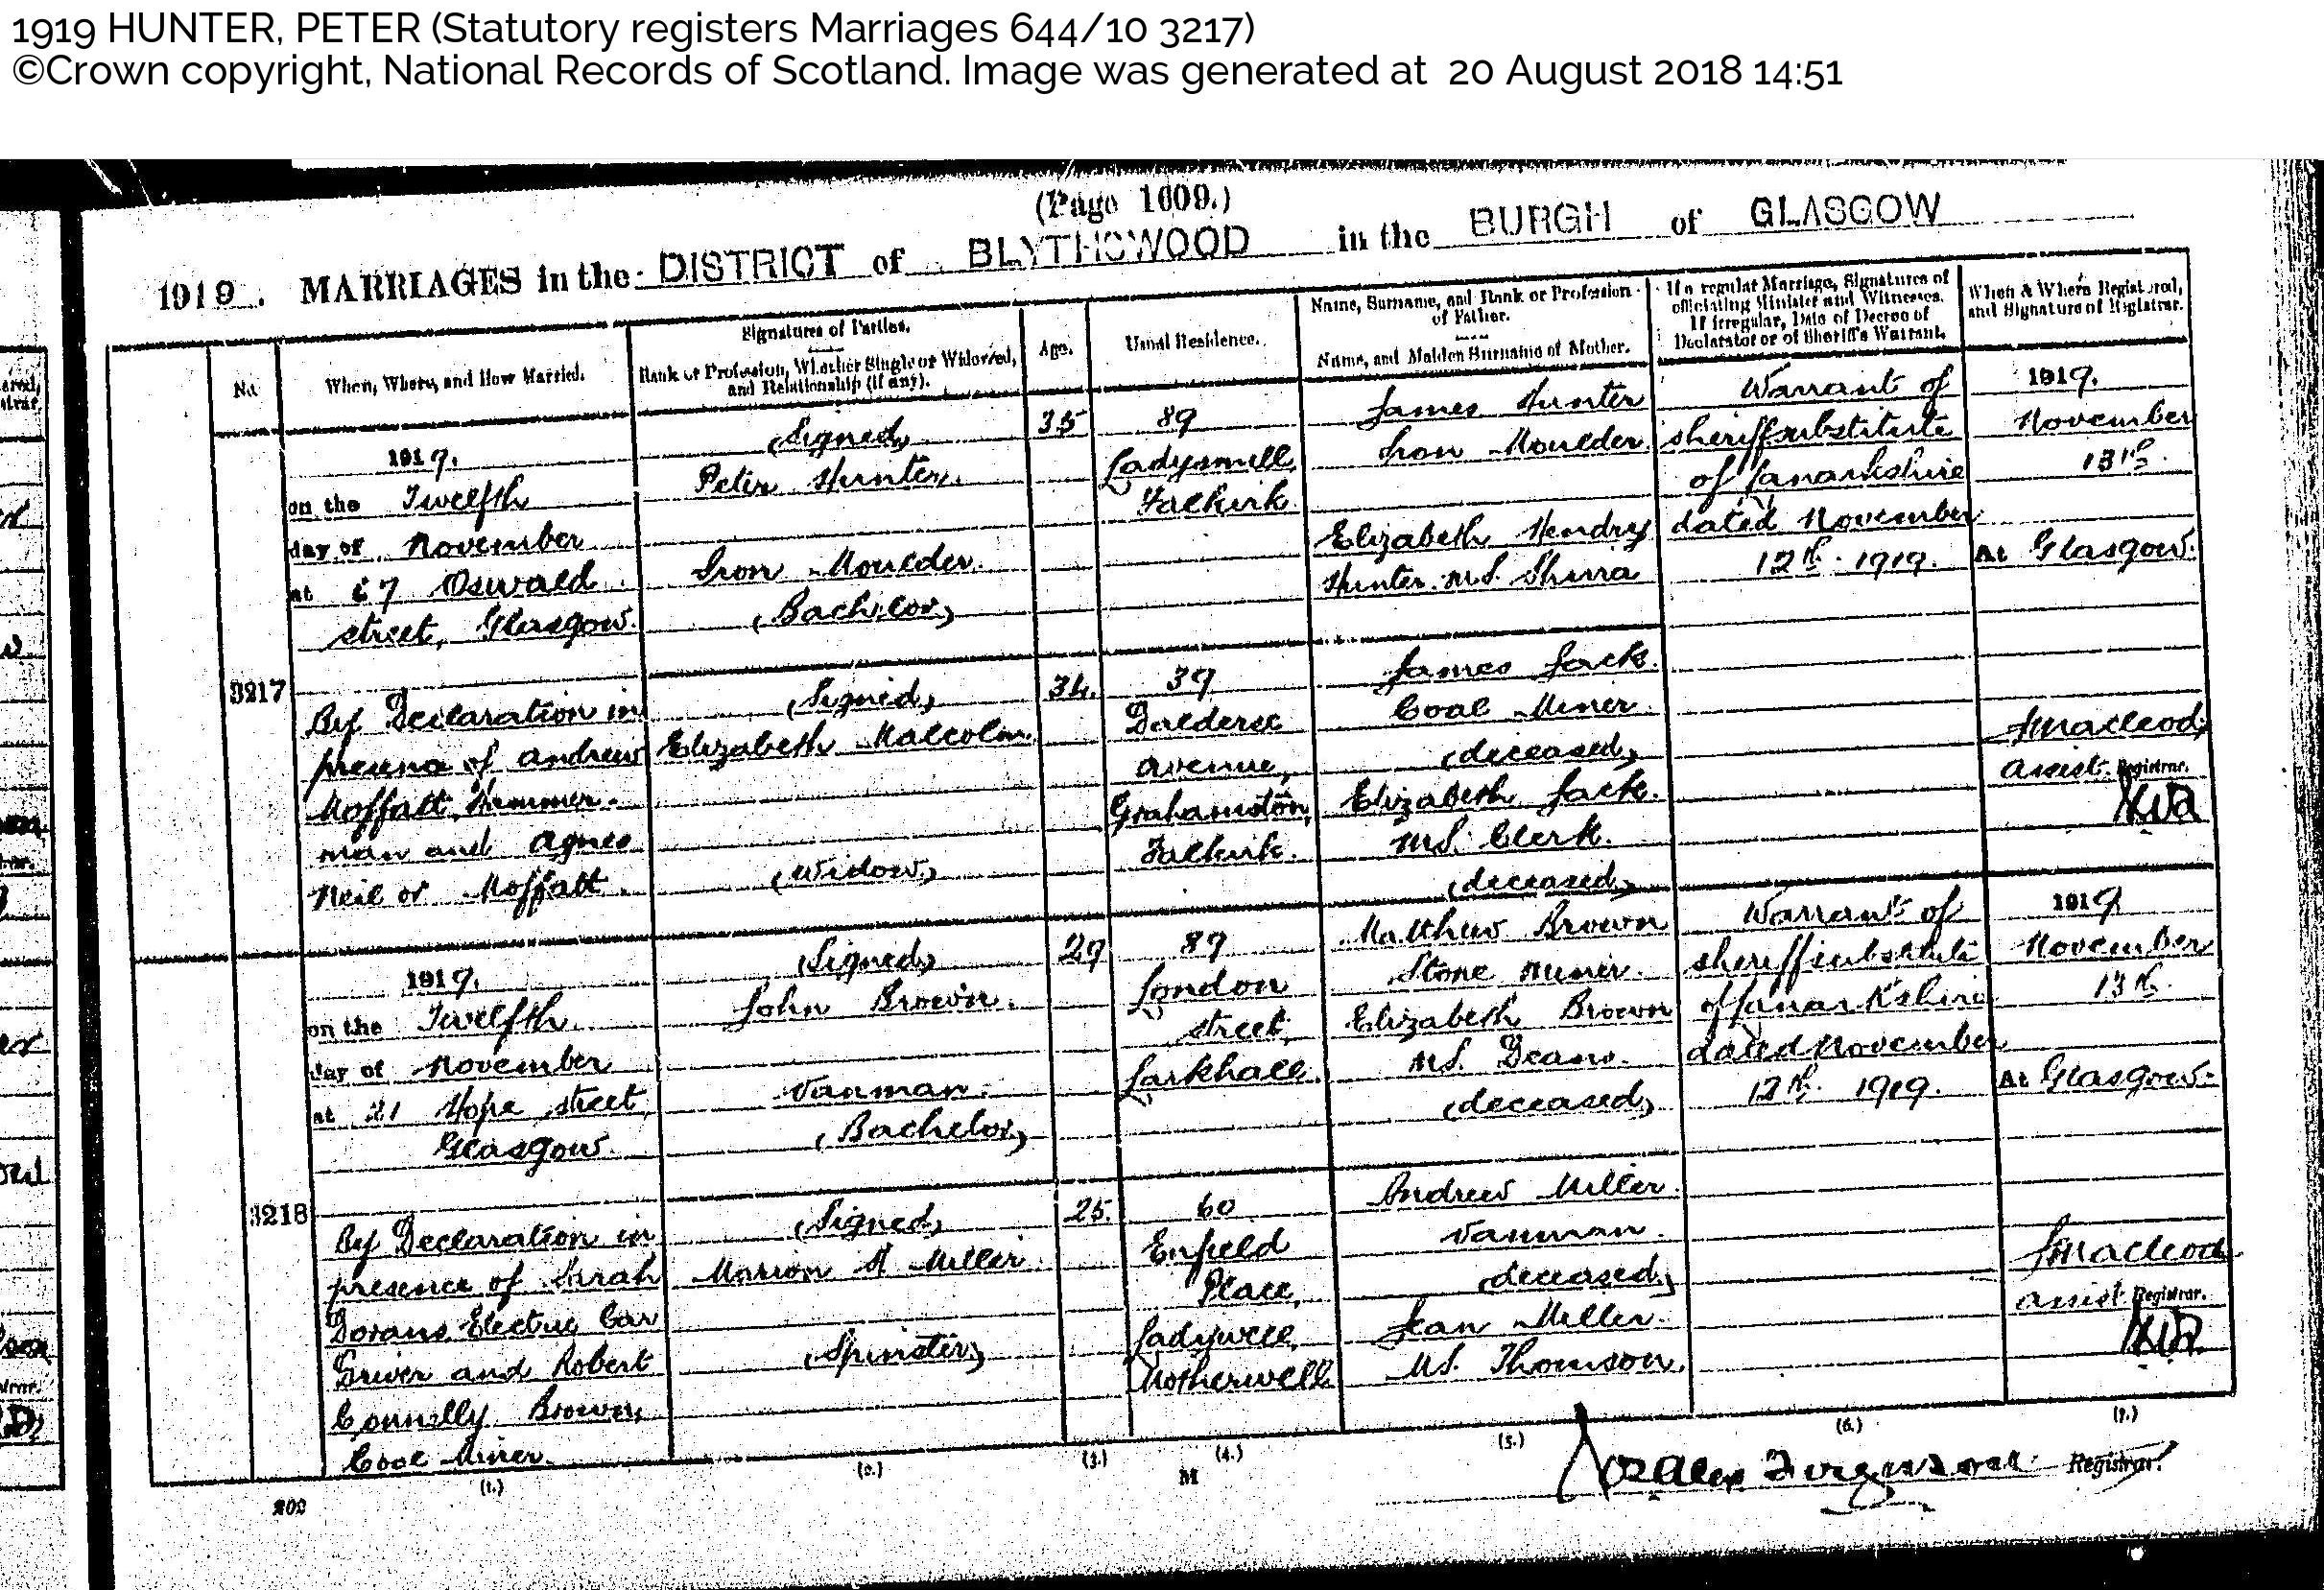 1919 HUNTER, PETER (Statutory registers Marriages 644/10 3217)
©Crown copyright, National Records of Scotland. Image was generated at 20 August 2018 14:51
(Page 1609.)
1919. MARRIAGES in the DISTRICT of BLYTHSWOOD in the BURGH of GLASGOW
No.
When, Where, and How Married.
Signatures of Parties.
Rank or Profession, Whether Single or Widowed,
and Relationship (if any).
Age.
Usual Residence.
Name, Surname, and Rank or Profession
of Father.
Name, and Maiden Surname of Mother.
If a regular Marriage, Signatures of
officiating Minister and Witnesses.
If irregular, Date of Decree of
Declarator or of Sheriff's Warrant.
When & Where Registered,
and Signature of Registrar.
3217
1919.
on the Twelfth
day of November
at 67 Oswald
street, Glasgow.
By Declaration in
presence of Andrew
Moffatt, Hammer-
man and Agnes
Neil or Moffatt.
(Signed)
Peter Hunter.
Iron Moulder.
(Bachelor)
(Signed)
Elizabeth Malcolm.
(Widow)
35
34.
89
Ladysmill,
Falkirk.
39
Dalderse
Avenue,
Grahamston,
Falkirk.
James Hunter
Iron Moulder.
Elizabeth Hendry
Hunter M.S. Shirra
James Jack.
Coal Miner.
(deceased)
Elizabeth Jack.
M.S. Clerk.
(deceased)
Warrant of
sheriff substitute
of Lanarkshire
dated November
12th 1919.
1919.
November
13th.
At Glasgow.
Macleod,
Assist. Registrar.
3218
1919.
on the Twelfth
day of November
at 21 Hope street,
Glasgow.
By Declaration in
presence of Sarah
Dorans, Electric Car
Driver and Robert
Connelly Brown,
Coal Miner.
(Signed)
John Brown.
Vanman.
(Bachelor)
(Signed)
Marion H Miller
(Spinster)
29
25.
89
London
street,
Larkhall.
60
Enfield
Place,
Ladywell,
Motherwell
Matthew Brown
Stone Miner.
Elizabeth Brown
M.S. Deans.
(deceased)
Andrew Miller.
Vanman.
(deceased)
Jean Miller.
M.S. Thomson.
Warrant of
sheriff substitute
of Lanarkshire
dated November
12th. 1919.
1919
November
13th.
At Glasgow.
Macleod
Assist. Registrar.
(1.) (2.) (3.) (4.) (5.) (6.) (7.)
200
M
Registrar.